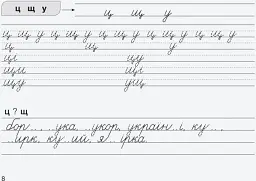 ц щ у
ц щ у
ц щ у ц щ у ц щ у ц щ у ц щ у ц щ у
ц щ у
ці цу
щи щі
щу ущ
ц ? щ
бор... , ...ука, ...укор, україн...і, ку... ,
...ирк, ку...ий, я...ірка.
8